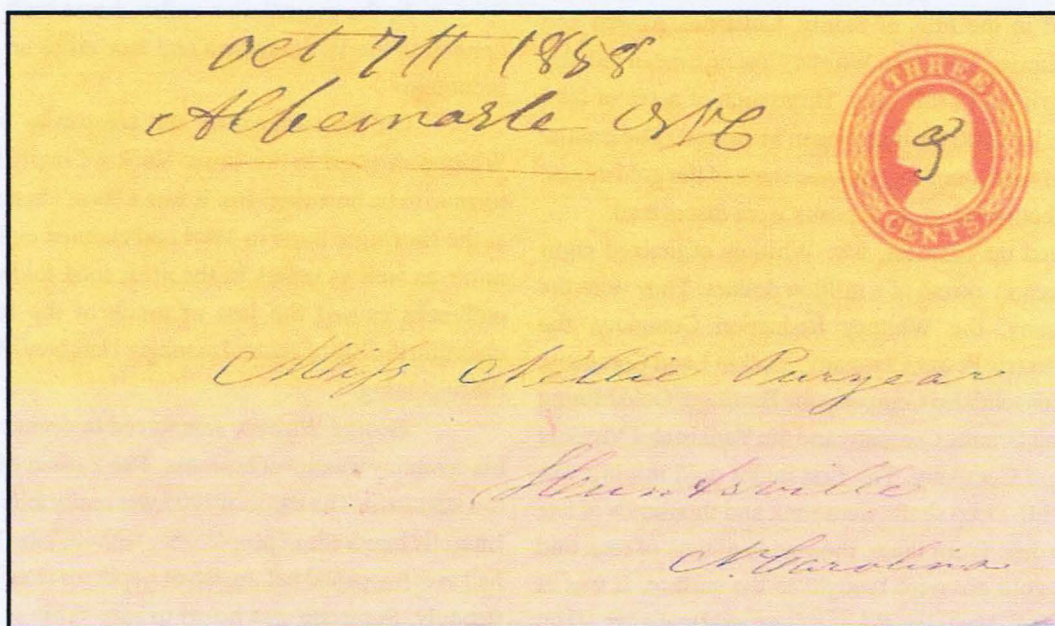 Oct 7th 1858
Albemarle N C
THREE
3
CENTS
Miss Nellie Puryear
Huntsville
N. Carolina